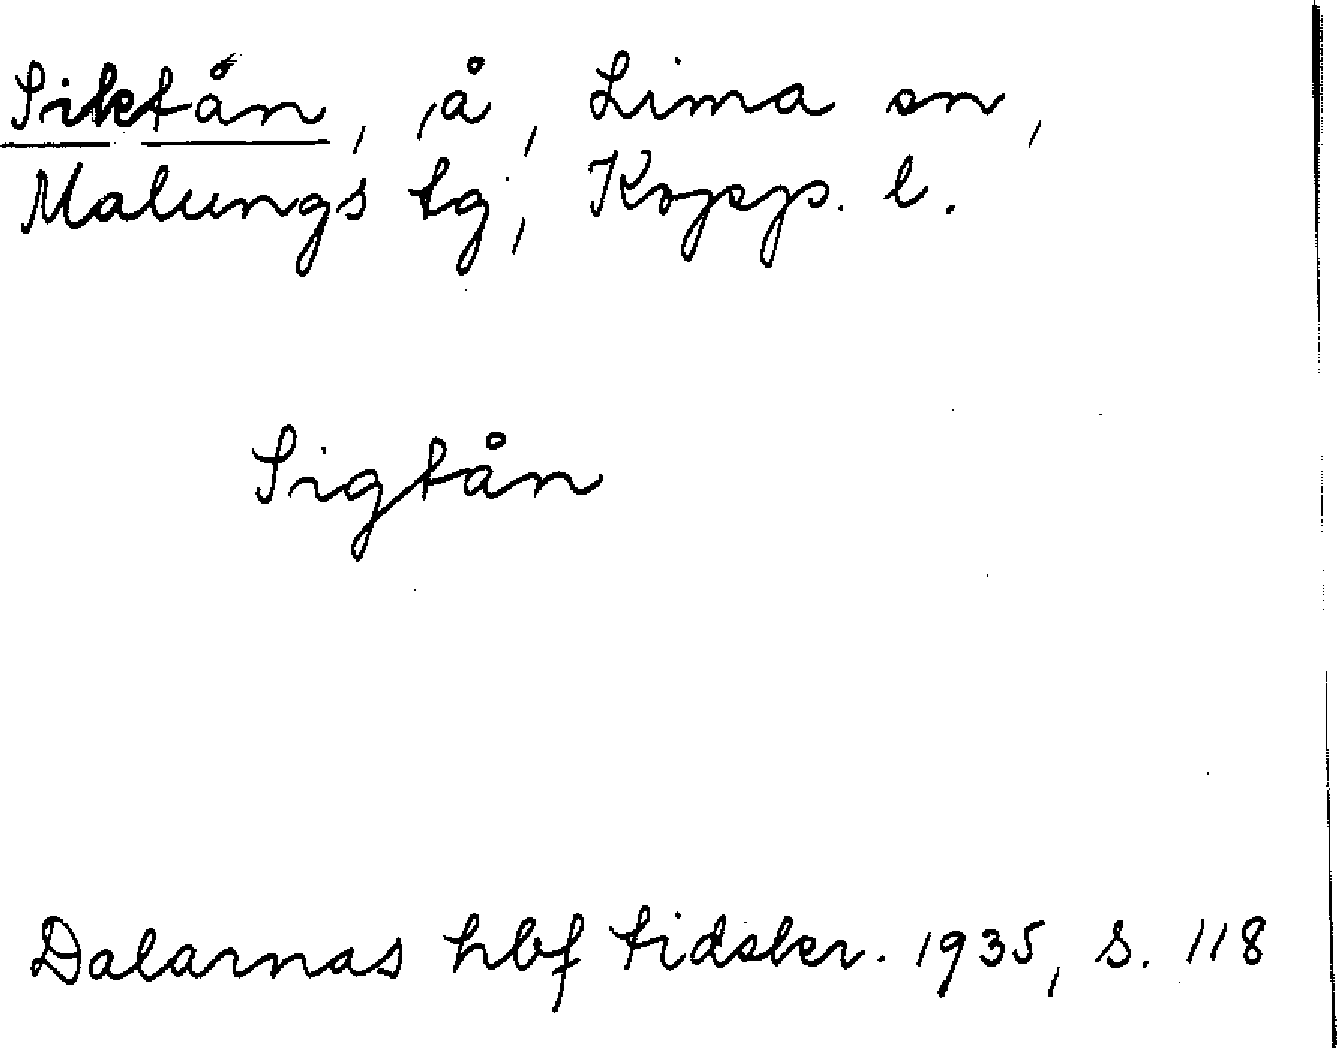 Siktån, å, Lima sn,
Malungs tg, Kopp. l.
Sigtån
Dalarnas hbf tidskr. 1935, s. 118